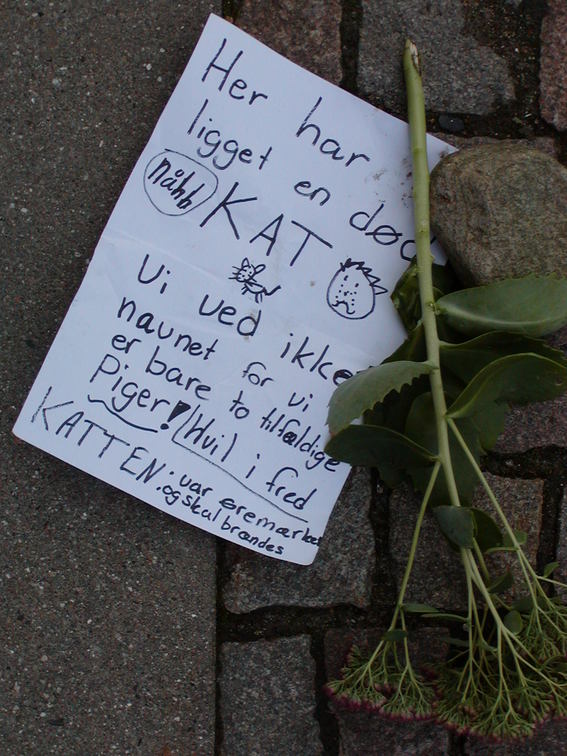 Her har
ligget en død
nåhh
KAT
Vi ved ikke
navnet for vi
er bare to tilfældige
Piger! Hvil i fred
KATTEN: var øremærket
og skal brændes